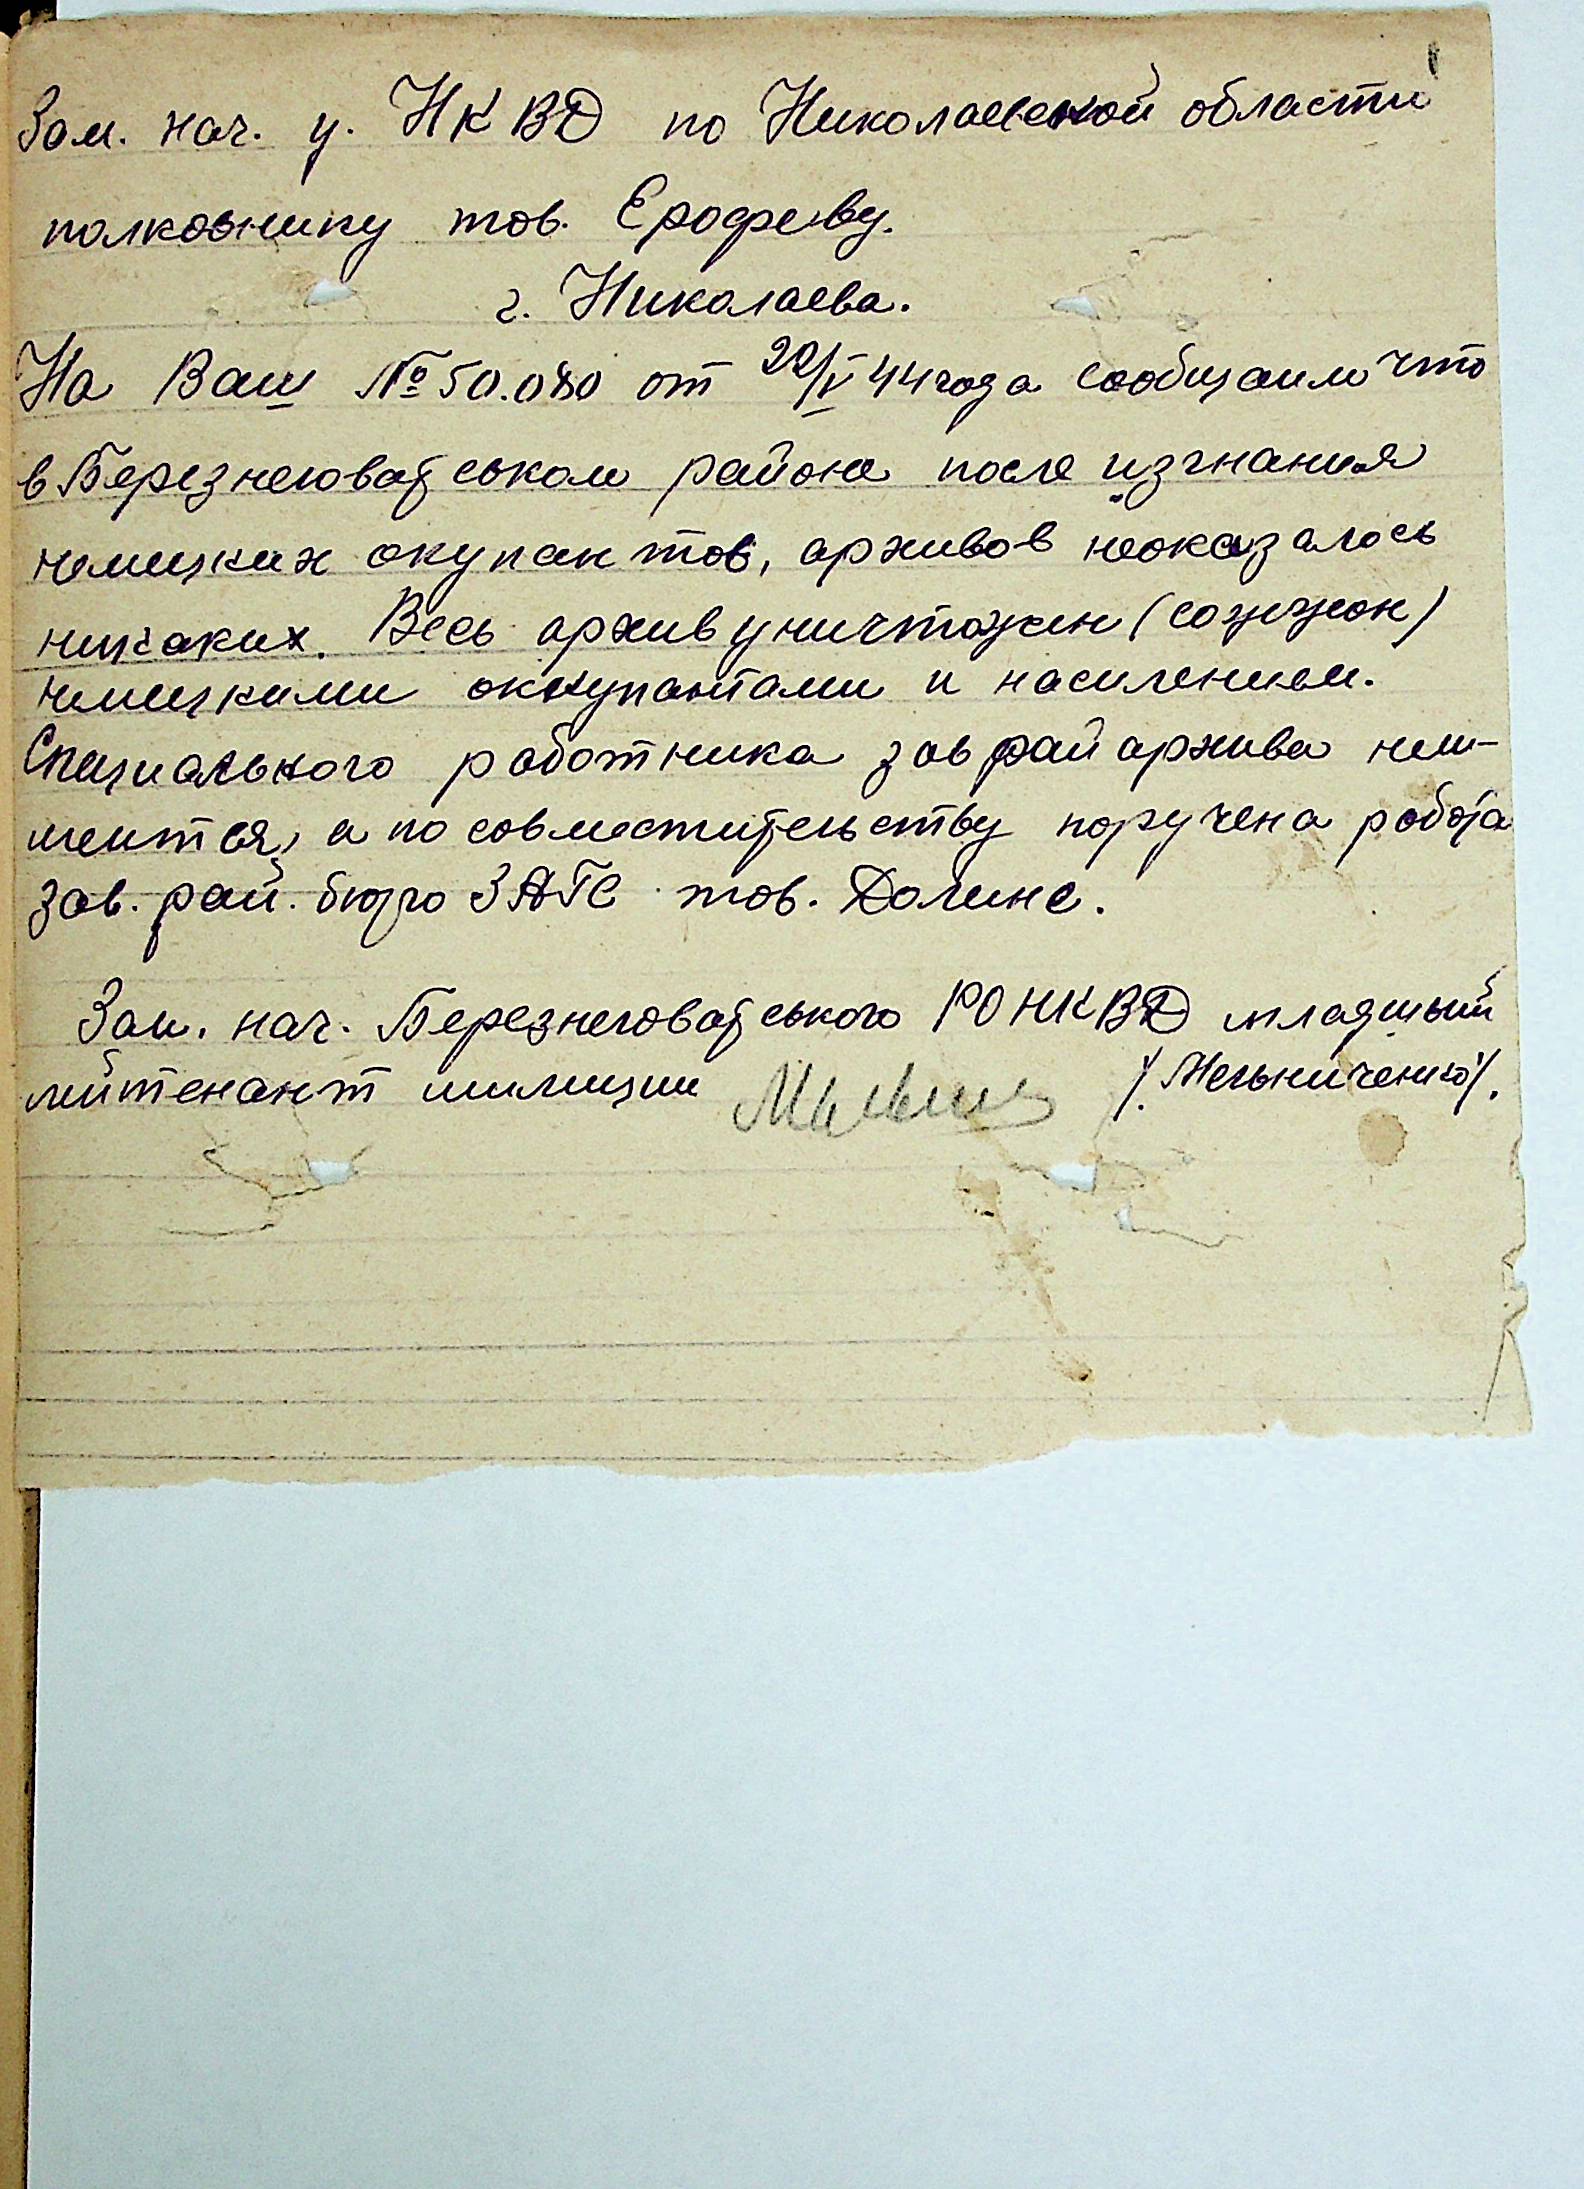 Зам. нач. у. НКВД по Николаевской области
полковнику тов. Ерофееву.
г. Николаева.
На Ваш № 50.080 от 20/V 44 года сообщаим что
в Березнеговатськом районе после изгнания
немецких окупантов, архивов неоказалось
никаких. Весь архив уничтожен (сожжон)
немецкими оккупантами и насилением.
Специального работника зав райархива неи-
меится, а по совместительству поручена робота
зав. рай. бюро ЗАГС тов. Долине.
Зам. нач. Березнеговатського РО НКВД младший
лейтенант милиции /Мельниченко/.